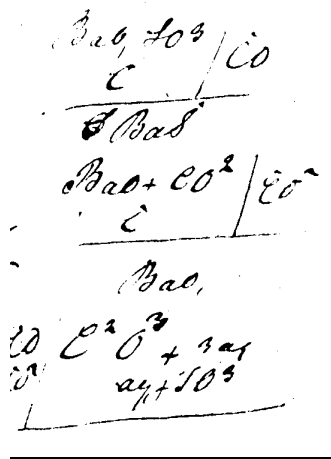 BaO, SO3 / CO
C
BaS
BaO + CO2 / CO2
C
BaO,
C2O3 + 3aq
aq + SO3